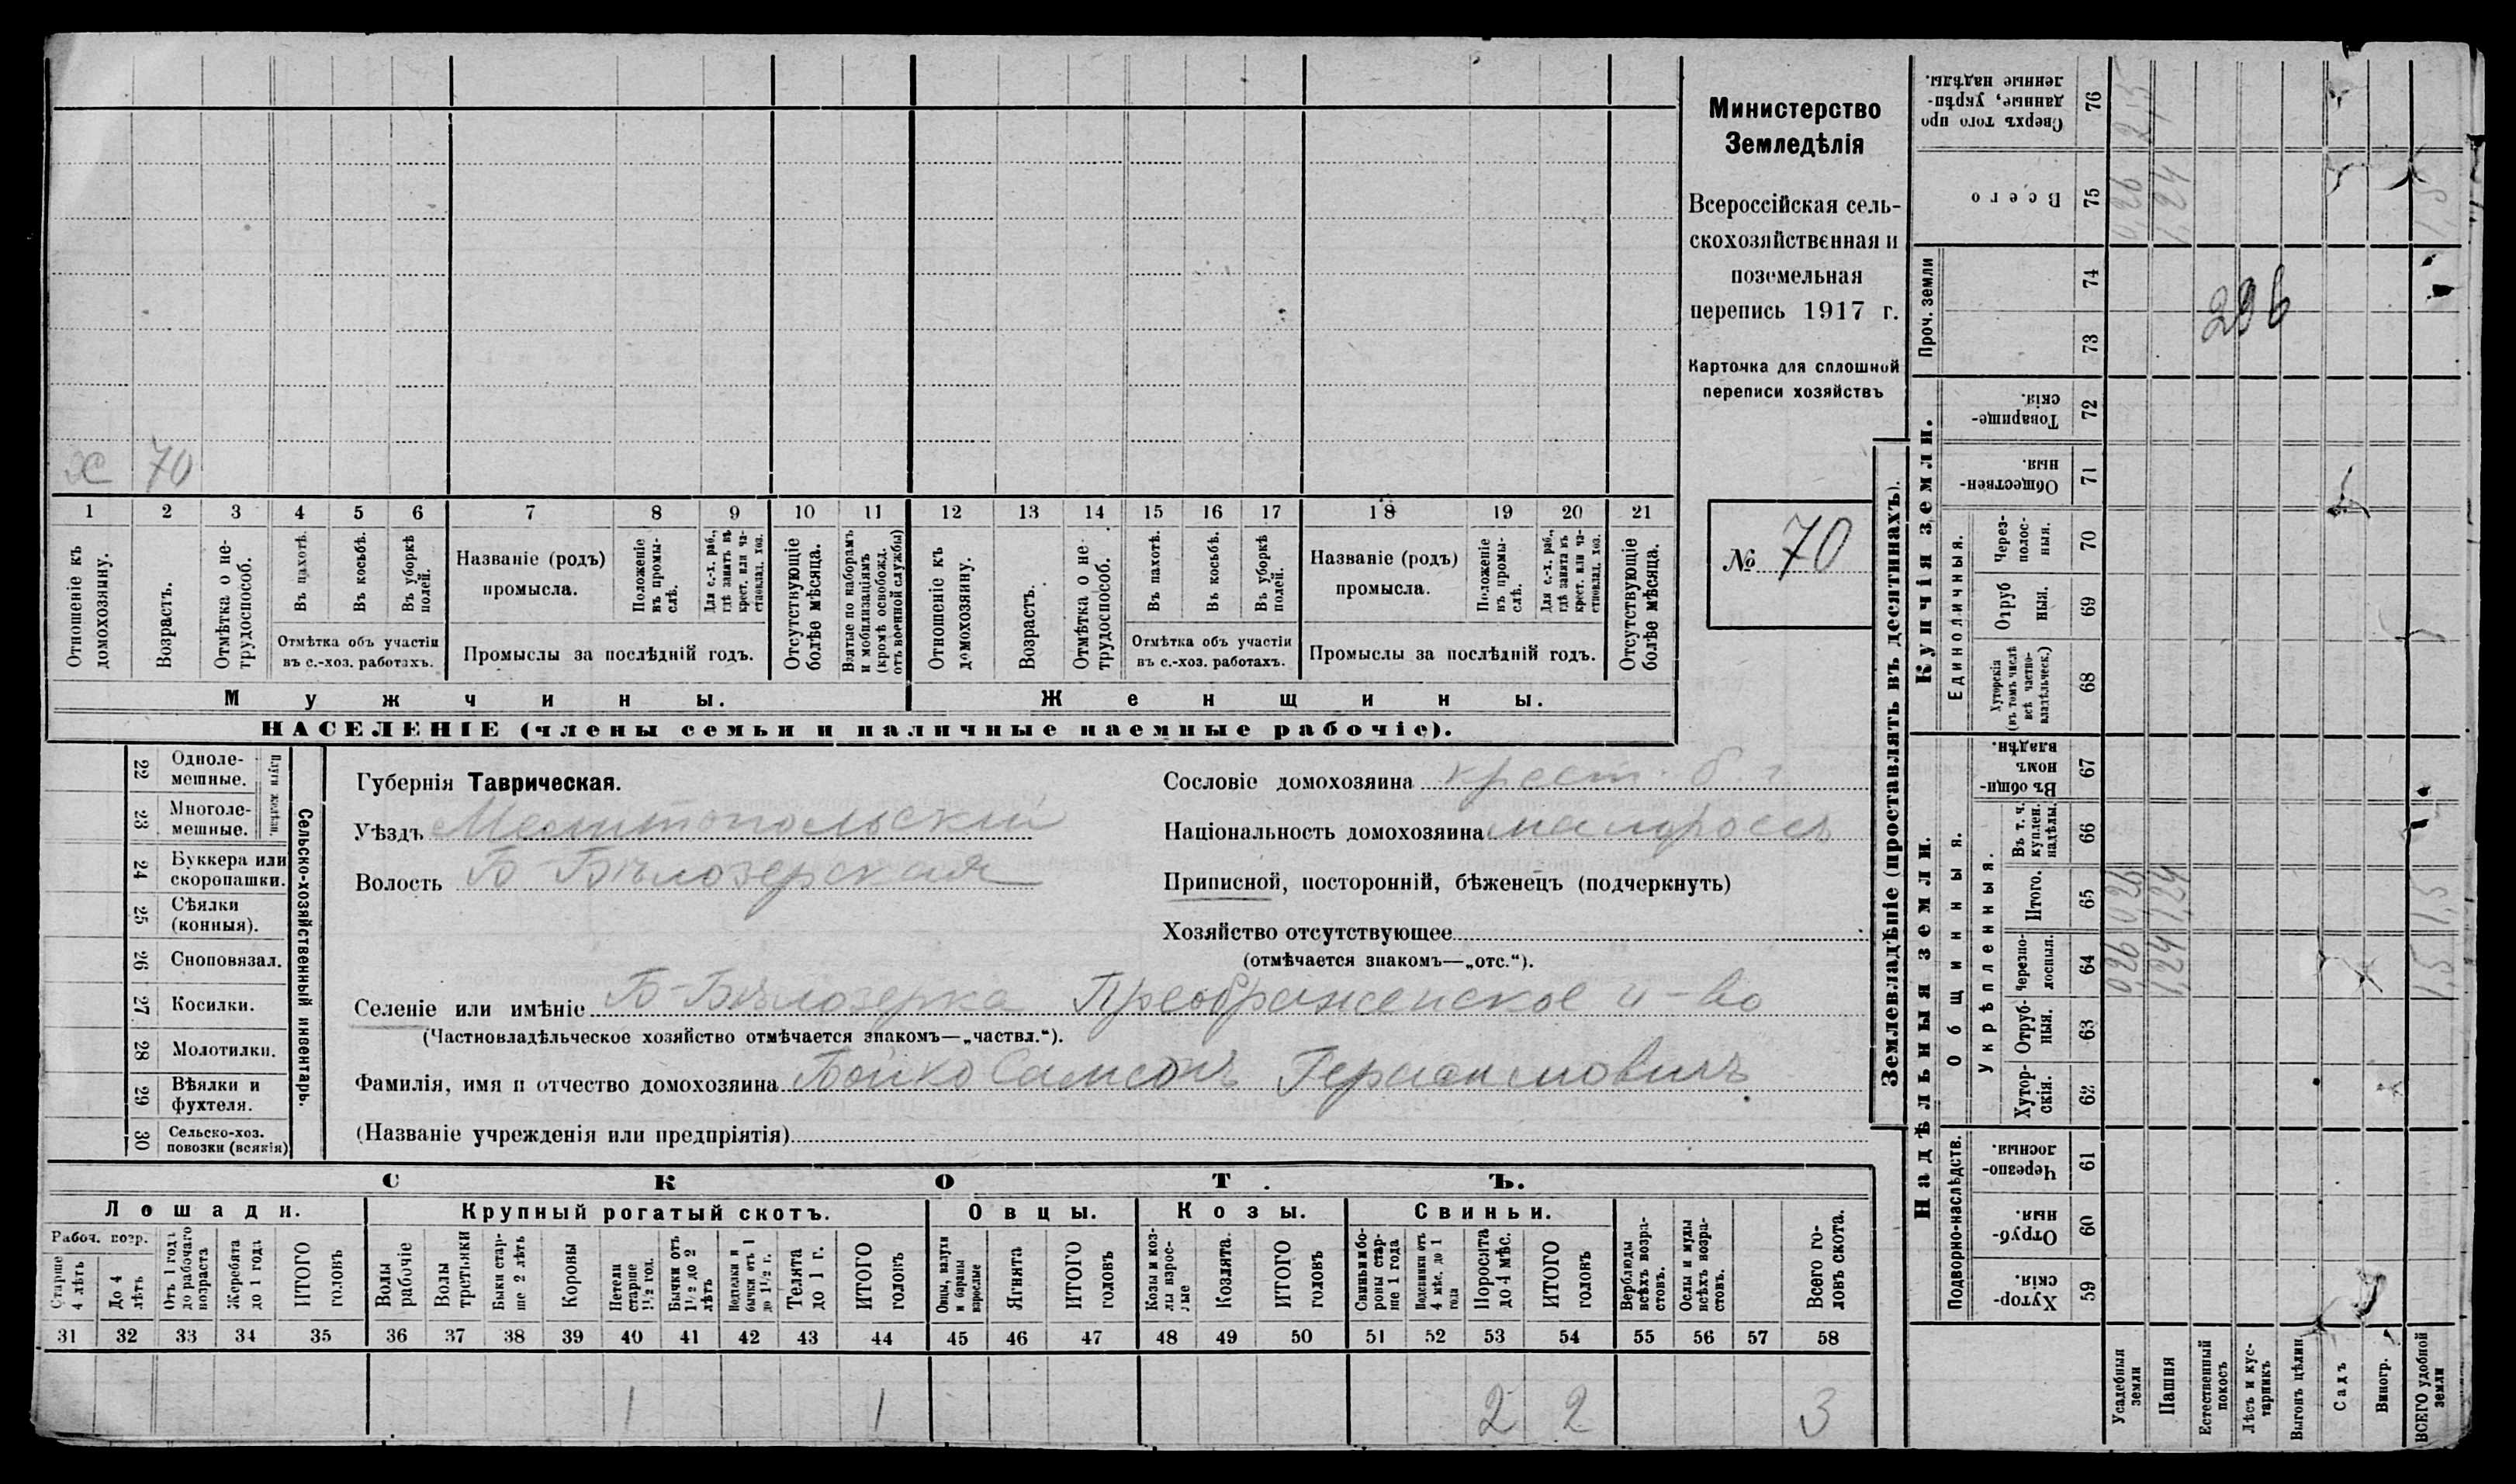 Министерство
Земледѣлія
Всероссійская сель-
скохозяйственная и
поземельная
перепись 1917 г.
Карточка для сплошной
переписи хозяйствъ
№ 70
х 70
1 2 3 4 5 6 7 8 9 10 11 12 13 14 15 16 17 18 19 20 21
Отношеніе къ домохозяину.
Возрастъ.
Отмѣтка о не-трудоспособ.
Въ пахотѣ.
Въ косьбѣ.
Въ уборкѣ полей.
Отмѣтка объ участіи
въ с.-хоз. работахъ.
Названіе (родъ)
промысла.
Положеніе въ промы-слѣ.
Для с.-х. раб., гдѣ занятъ въ крест. или ча-стновлад. хоз.
Промыслы за послѣдній годъ.
Отсутствующіе болѣе мѣсяца.
Взятые по наборамъ и мобилизаціямъ (кромѣ освобожд. отъ военной службы)
Отношеніе къ домохозяину.
Возрастъ.
Отмѣтка о не-трудоспособ.
Въ пахотѣ.
Въ косьбѣ.
Въ уборкѣ полей.
Отмѣтка объ участіи
въ с.-хоз. работахъ.
Названіе (родъ)
промысла.
Положеніе въ промы-слѣ.
Для с.-х. раб., гдѣ занята въ крест. или ча-стновлад. хоз.
Промыслы за послѣдній годъ.
Отсутствующіе болѣе мѣсяца.
Мужчины.
Женщины.
НАСЕЛЕНІЕ (члены семьи и наличные наемные рабочіе).
22 Одноле-мешные.
23 Многоле-мешные.
Плуги желѣзн.
24 Буккера или скоропашки.
25 Сѣялки (конныя).
26 Сноповязал.
27 Косилки.
28 Молотилки.
29 Вѣялки и фухтеля.
30 Сельско-хоз. повозки (всякія)
Сельско-хозяйственный инвентарь.
Губернія Таврическая.
Уѣздъ Мелитопольскій
Волость Б-Бѣлозерская
Сословіе домохозяина крест.
Національность домохозяина малороссъ
Приписной, посторонній, бѣженецъ (подчеркнуть)
Хозяйство отсутствующее
(отмѣчается знакомъ—„отс.“).
Селеніе или имѣніе Б-Бѣлозерка Преображенское
(Частновладѣльческое хозяйство отмѣчается знакомъ—„частвл.“).
Фамилія, имя и отчество домохозяина Бойко Самсонъ Герасимовичъ
(Названіе учрежденія или предпріятія)
СКОТЪ.
Лошади.
Крупный рогатый скотъ.
Овцы.
Козы.
Свиньи.
Рабоч. возр.
Старше 4 лѣтъ
До 4 лѣтъ
Отъ 1 года до рабочаго возраста
Жеребята до 1 года
ИТОГО головъ
Волы рабочіе
Волы третьяки
Быки стар-ше 2 лѣтъ
Коровы
Нетели старше 1½ год.
Бычки отъ 1½ до 2 лѣтъ
Телки и бычки отъ 1 до 1½ г.
Телята до 1 г.
ИТОГО головъ
Овцы, валухи и бараны взрослые
Ягнята
ИТОГО головъ
Козы и коз-лы взрос-лые
Козлята.
ИТОГО головъ
Свиньи и бо-ровы стар-ше 1 года
Подсвинки отъ 4 мѣс. до 1 года
Поросята до 4 мѣс.
ИТОГО головъ
Верблюды всѣхъ возра-стовъ.
Ослы и мулы всѣхъ возра-стовъ.
Всего го-ловъ скота.
31 32 33 34 35 36 37 38 39 40 41 42 43 44 45 46 47 48 49 50 51 52 53 54 55 56 57 58
1 1 2 2 3
Землевладѣніе (проставлять въ десятинахъ).
Надѣльныя земли.
Купчія земли.
Проч. земли
Подворно-наслѣдств.
Общинныя.
Укрѣпленныя.
Единоличныя.
Сверхъ того про-данные, укрѣп-ленные надѣлы. 76
Всего 75
74
73
Товарище-скія. 72
Обществен-ныя. 71
Через-полос-ныя. 70
Отруб-ныя. 69
Хуторскія (въ томъ числѣ всѣ частно-владѣльческ.) 68
Въ общин-номъ владѣн. 67
Въ т. ч. куплен. надѣлы. 66
Итого. 65
Черезпо-лосныя. 64
Отруб-ныя. 63
Хутор-скія. 62
Черезпо-лосныя. 61
Отруб-ныя. 60
Хутор-скія. 59
Усадебныя земли
Пашня
Естественный покосъ
Лѣсъ и кус-тарникъ
Выгонъ цѣлин
Садъ
Виногр.
ВСЕГО удобной земли
0,26 0,26 0,26
1,24 1,24 1,24
1,5 1,5 1,5
206